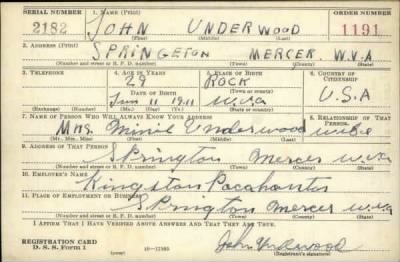 SERIAL NUMBER 1. NAME (Print) ORDER NUMBER
2182 JOHN UNDERWOOD 1191
(First) (Middle) (Last)
2. ADDRESS (Print)
SPRINGTON MERCER W.V.A
(Number and street or R. F. D. number) (Town) (County) (State)
3. TELEPHONE 4. AGE IN YEARS 5. PLACE OF BIRTH 6. COUNTRY OF CITIZENSHIP
29 ROCK
(Town or county)
JUN 11 1911 W.Va U.S.A
(Exchange) (Number) (Mo.) (Day) (Yr.) (State or country)
7. NAME OF PERSON WHO WILL ALWAYS KNOW YOUR ADDRESS 8. RELATIONSHIP OF THAT PERSON
Mrs. Underwood wife
(Mr., Mrs., Miss) (First) (Middle) (Last)
9. ADDRESS OF THAT PERSON
SPrington Mercer W.Va
(Number and street or R. F. D. number) (Town) (County) (State)
10. EMPLOYER'S NAME
Kingston Pocahontas
11. PLACE OF EMPLOYMENT OR BUSINESS
SPrington Mercer W.Va
(Number and street or R. F. D. number) (Town) (County) (State)
I AFFIRM THAT I HAVE VERIFIED ABOVE ANSWERS AND THAT THEY ARE TRUE.
REGISTRATION CARD
D. S. S. Form 1 (over) 16—17105 John Underwood
(Registrant's signature)